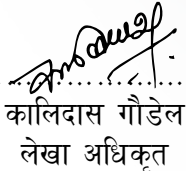 कालिदास गौडेल
लेखा अधिकृत